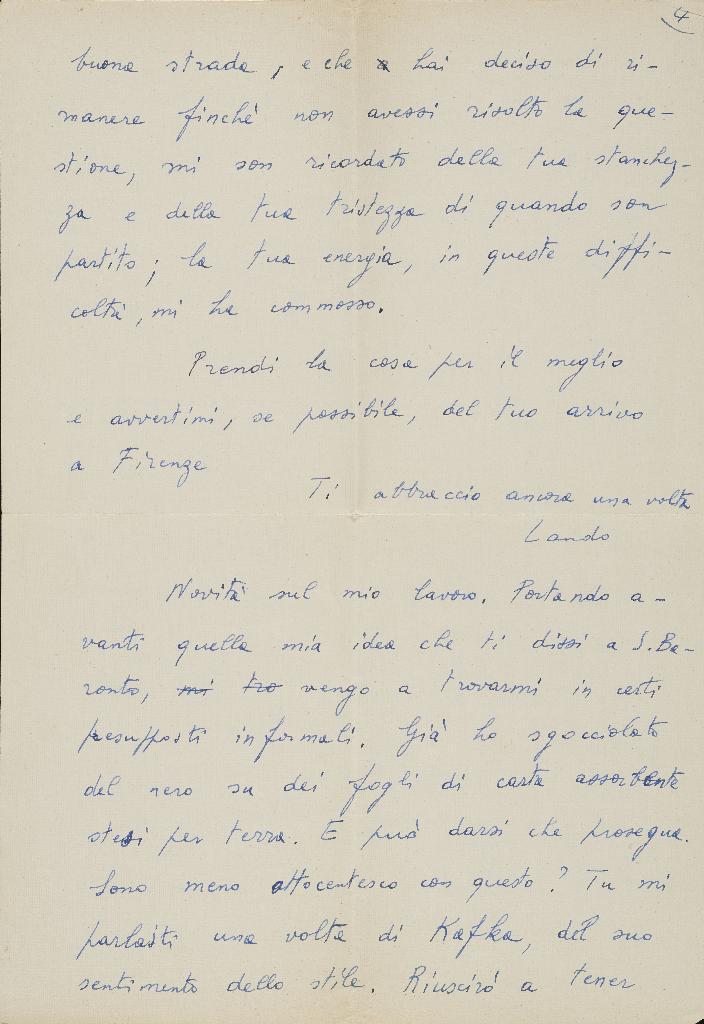 4
buona strada, e che hai deciso di ri-
manere finché non avessi risolto la que-
stione, mi son ricordato della tua stanchez-
za e della tua tristezza di quando son
partito; la tua energia, in queste diffi-
coltà, mi ha commosso.
Prendi la cosa per il meglio
e avvertimi, se possibile, del tuo arrivo
a Firenze
Ti abbraccio ancora una volta
Lando
Novità sul mio lavoro. Portando a-
vanti quella mia idea che ti dissi a S. Ba-
ronto, mi tro vengo a trovarmi in certi
presupposti informali. Già ho sgocciolato
del nero su dei fogli di carta assorbente
stesi per terra. E può darsi che prosegua.
Sono meno ottocentesco con questo? Tu mi
parlasti una volta di Kafka, del suo
sentimento dello stile. Riuscirò a tener